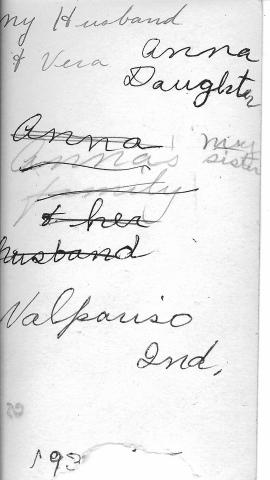 my Husband
& Vera Anna
Daughter
Anna
Annas my
sister
family
& her
husband
Valpariso
Ind,
193